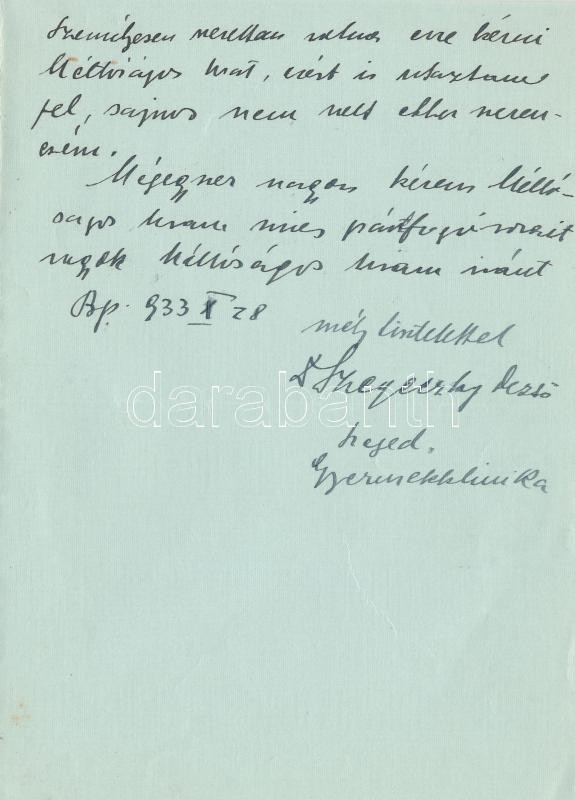 Személyesen szerettem volna erre kérni
Méltóságos Urat, ezért is utaztam
fel, sajnos nem volt ebben szeren-
csém.
Mégegyszer nagyon kérem Méltó-
ságos Uram szíves pártfogó sorait
vagyok Méltóságos Uram iránt
Bp. 933 X 28
mély tisztelettel
Dr Szegeszky Dezső
Szeged.
Gyermekklinika
darabanth